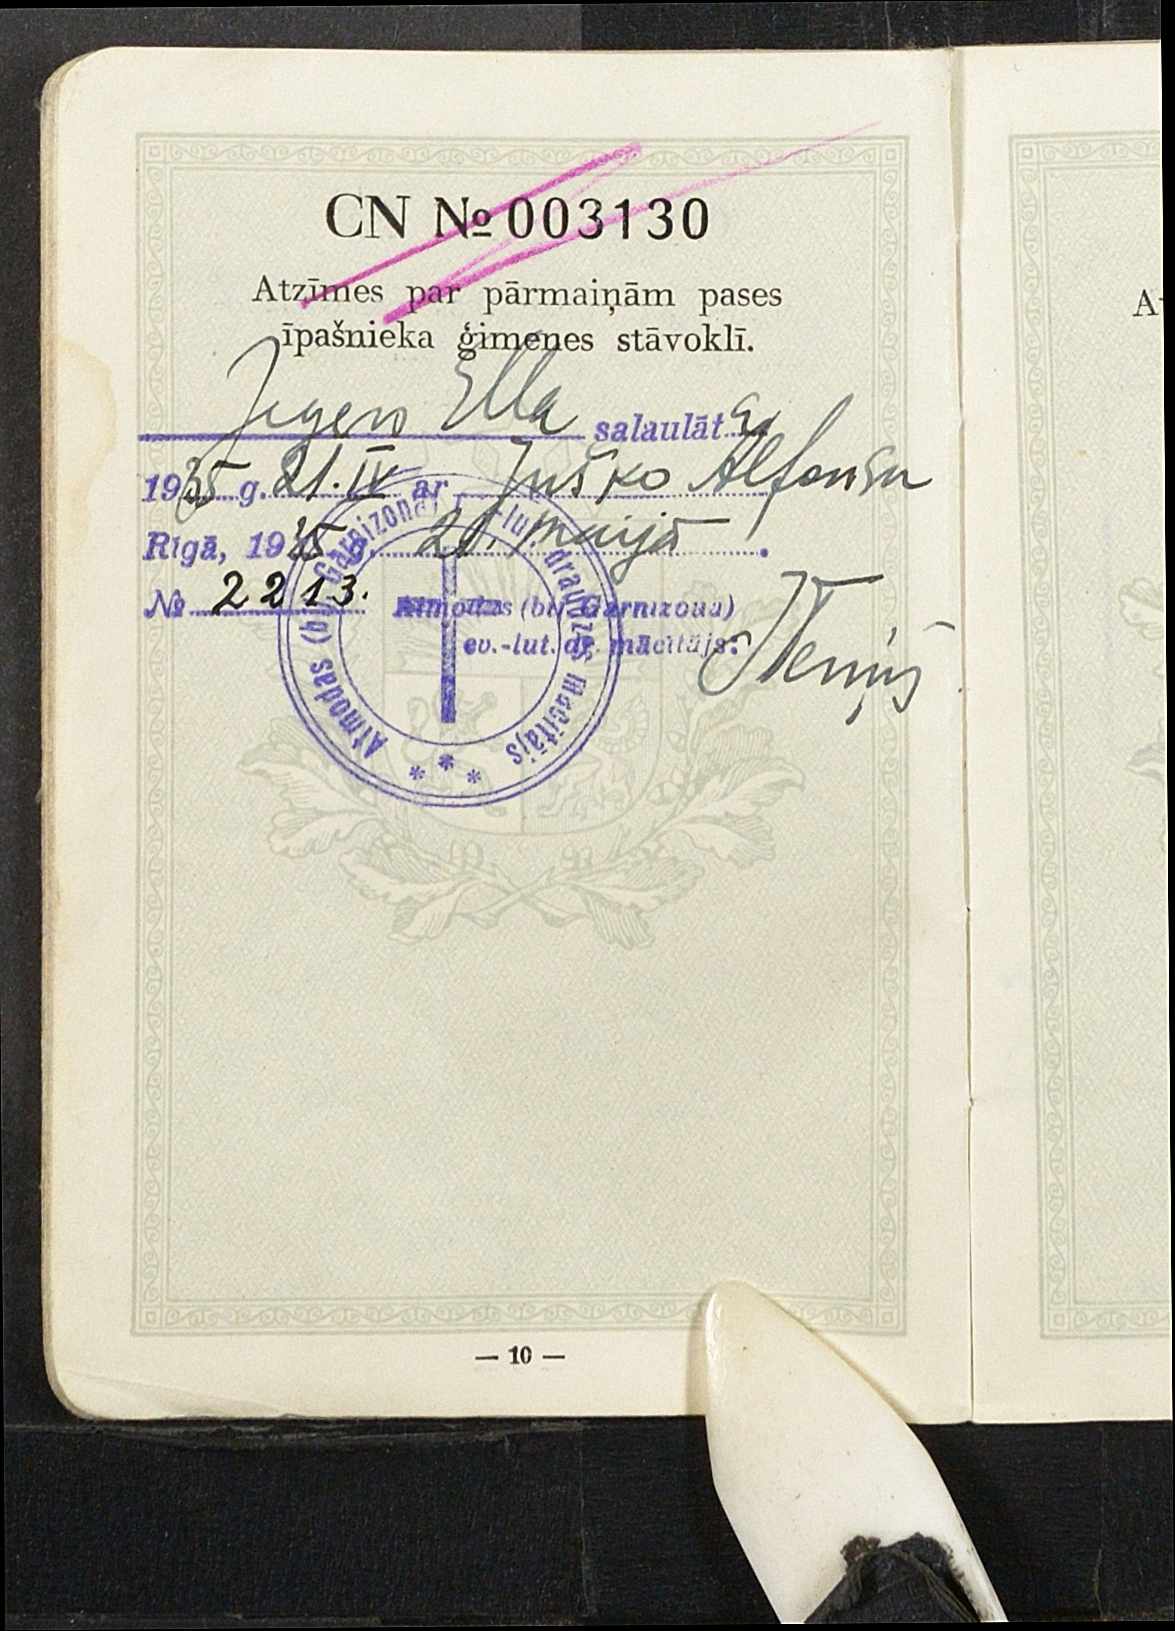 CN № 003130
Atzīmes par pārmaiņām pases
īpašnieka ģimenes stāvoklī.
Jegers Ella salaulāta
1935 g. 21. IV ar Juško Alfonsu
Rīgā, 1935 g. 20. maijā.
№ 2213. Atmodas (bij. Garnizona)
ev.-lut. dr. mācītājs:
Atmodas (bij. Garnizona) ev.-lut. draudzes mācītājs
— 10 —